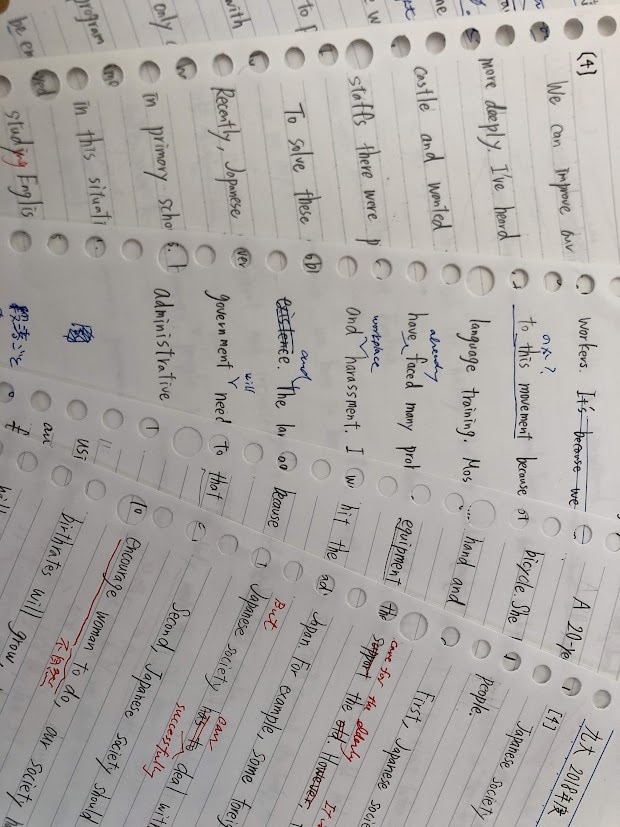 program
only
with
to
be en
[4]
We can improve our
more deeply. I've heard
castle and wanted
staffs there were
To solve these
Recently, Japanese
in primary scho
in this situati
studying Englis
workers. It's because we
to this movement because of
のか?
language training. Mos
already
have faced many
workplace
and harassment. I
existence. and The
will
government need to
administrative
段落ごと
A 20-
bicycle. She
hand and
equipment
hit the
because
that
usi
九大 2018年度
[4]
Japanese society
people.
First, Japanese socie
the support the old. However,
care for the elderly
Japan. For example, some forei
But
Japanese society has to deal wit
can
successfully
Second, Japanese society should
to encourage woman to do,
不自然
birthrates will grow,
our society